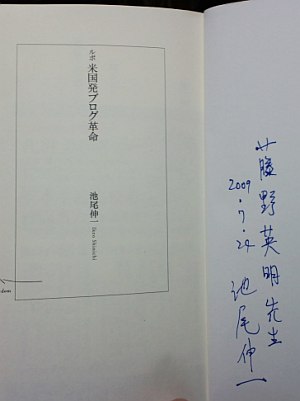 ルポ 米国発ブログ革命
池尾伸一
Ikeo Shinichi
藤野英明先生
2009.7.24
池尾伸一